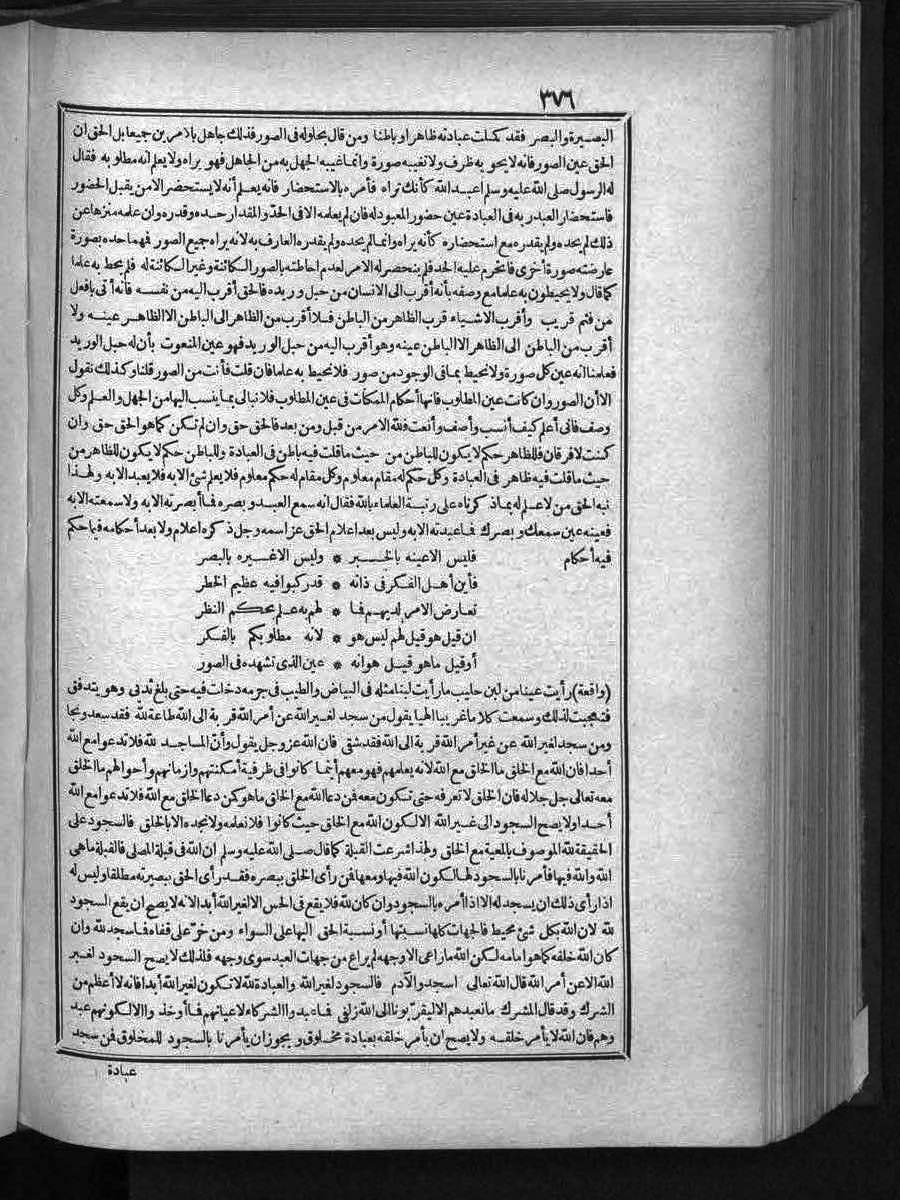 ٣٧٦
البصيرة والبصر فقد كملت عبادته ظاهرا وباطنا ومن قال بحلوله فى الصور فذلك جاهل بالامرين جميعا بل الحق ان
الحق عين الصور فانه لا يحويه ظرف ولا تغيبه صورة وانما غيبه الجهل به من الجاهل فهو يراه ولا يعلم انه مطلوبه فقال
له الرسول صلى الله عليه وسلم اعبد الله كأنك تراه فأمره بالاستحضار فانه يعلم أنه لا يستحضر الا من يقبل الحضور
فاستحضار العبد ربه فى العبادة عين حضور المعبود له فان لم يعلمه الا فى الحد والمقدار حده وقدره وان علمه منزها عن
ذلك لم يحده ولم يقدره مع استحضاره كأنه يراه وانما لم يحده ولم يقدره العارف به لانه يراه جميع الصور فهما حده بصورة
عارضته صورة أخرى فانخرم عليه الحد فلم ينحصر له الامر لعدم احاطته بالصور الكائنة وغير الكائنة له فلم يحط به علما
كما قال ولا يحيطون به علما مع وصفه بأنه أقرب الى الانسان من حبل وريده فالحق أقرب اليه من نفسه فانه أتى بافعل
من فثم قريب وأقرب الاشياء قرب الظاهر من الباطن فلا أقرب من الظاهر الى الباطن الا الظاهر عينه ولا
أقرب من الباطن الى الظاهر الا الباطن عينه وهو أقرب اليه من حبل الوريد فهو عين المنعوت بأن له حبل الوريد
فعلمنا انه عين كل صورة ولا نحيط بما فى الوجود من صور فلا نحيط به علما فان قلت فأنت من الصور قلنا وكذلك نقول
الا أن الصور وان كانت عين المطلوب فانها أحكام الممكنات فى عين المطلوب فلا نبالى بما ينسب اليها من الجهل والعلم وكل
وصف فانى أعلم كيف أنسب وأصف وأنعت ولله الامر من قبل ومن بعد فالحق حق وان لم تكن كما هو الحق حق وان
كنت لا فرقان فللظاهر حكم لا يكون للباطن من حيث ما قلت فيه باطن فى العبادة وللباطن حكم لا يكون للظاهر من
حيث ما قلت فيه ظاهر فى العبادة وكل حكم له مقام معلوم وكل مقام له حكم معلوم فلا يعلم شئ الا به فلا يعبد الا به ولهذا
نبه الحق من لا علم له بما ذكرناه على رتبة العلماء بالله فقال انه سمع العبد وبصره فما أبصرته الا به ولا سمعته الا به
فعينه عين سمعك وبصرك فما عبدته الا به وليس بعد اعلام الحق عز اسمه وجل ذكره اعلام ولا بعد أحكامه فيما حكم
فيه أحكام فليس الا عينه بالخبر * وليس الا غيره بالبصر
فأين أهل الفكر فى ذاته * قد ركبوا فيه عظيم الخطر
تعارض الامر لديهم فما * لهم به علم بحكم النظر
ان قيل هو قيل لهم ليس هو * لانه مطلوبكم بالفكر
أو قيل ما هو قيل هو انه * عين الذى تشهده فى الصور
(واقعة) رأيت عينا من لبن حليب ما رأيت لبنا مثله فى البياض والطيب فى جرمه دخلت فيه حتى بلغ ثديى وهو يتدفق
فتعجبت لذلك وسمعت كلاما غريبا الهيا يقول من سجد لغير الله عن أمر الله قربة الى الله طاعة لله فقد سعد ونجا
ومن سجد لغير الله عن غير أمر الله قربة الى الله فقد شقى فان الله عز وجل يقول وأن المساجد لله فلا تدعوا مع الله
أحدا فان الله مع الخلق ما الخلق مع الله لانه يعلمهم فهو معهم أينما كانوا فى ظرفية أمكنتهم وازمانهم وأحوالهم ما الخلق
معه تعالى جل جلاله فان الخلق لا تعرفه حتى تكون معه فمن دعا الله مع الخلق ما هو كمن دعا الخلق مع الله فلا تدعوا مع الله
أحدا ولا يصح السجود الى غير الله الا لكون الله مع الخلق حيث كانوا فلا نعلمه ولا نجده الا بالخلق فالسجود على
الحقيقة لله الموصوف بالمعية مع الخلق ولهذا شرعت القبلة كما قال صلى الله عليه وسلم ان الله فى قبلة المصلى فالقبلة ما هى
الله والله فيها فأمرنا بالسجود لها لكون الله فيها ومعها فمن رأى الخلق ببصره فقد رأى الحق ببصيرته مطلقا وليس له
اذا رأى ذلك ان يسجد له الا اذا أمره بالسجود وان كان لله فلا يقع فى الحس الا لغير الله أبدا لانه لا يصح ان يقع السجود
لله لان الله بكل شئ محيط فالجهات كلها نسبتها أو نسبة الحق اليها على السواء ومن خر على قفاه فما سجد لله وان
كان الله خلفه كما هو امامه لكن الله ما راعى الا وجهه لم يراع من جهات العبد سوى وجهه فلذلك لا يصح السجود لغير
الله الا عن أمر الله قال الله تعالى اسجدوا لآدم فالسجود لغير الله والعبادة لله لا تكون لغير الله أبدا فانه لا أعظم من
الشرك وقد قال المشرك ما نعبدهم الا ليقربونا الى الله زلفى فما عبدوا الشركاء لاعيانهم فما أوخذوا الا لكونهم عبد
وهم فان الله لا يأمر خلقه ولا يصح ان يأمر خلقه بعبادة مخلوق ويجوز ان يأمرنا بالسجود للمخلوق فمن سجد
عبادة